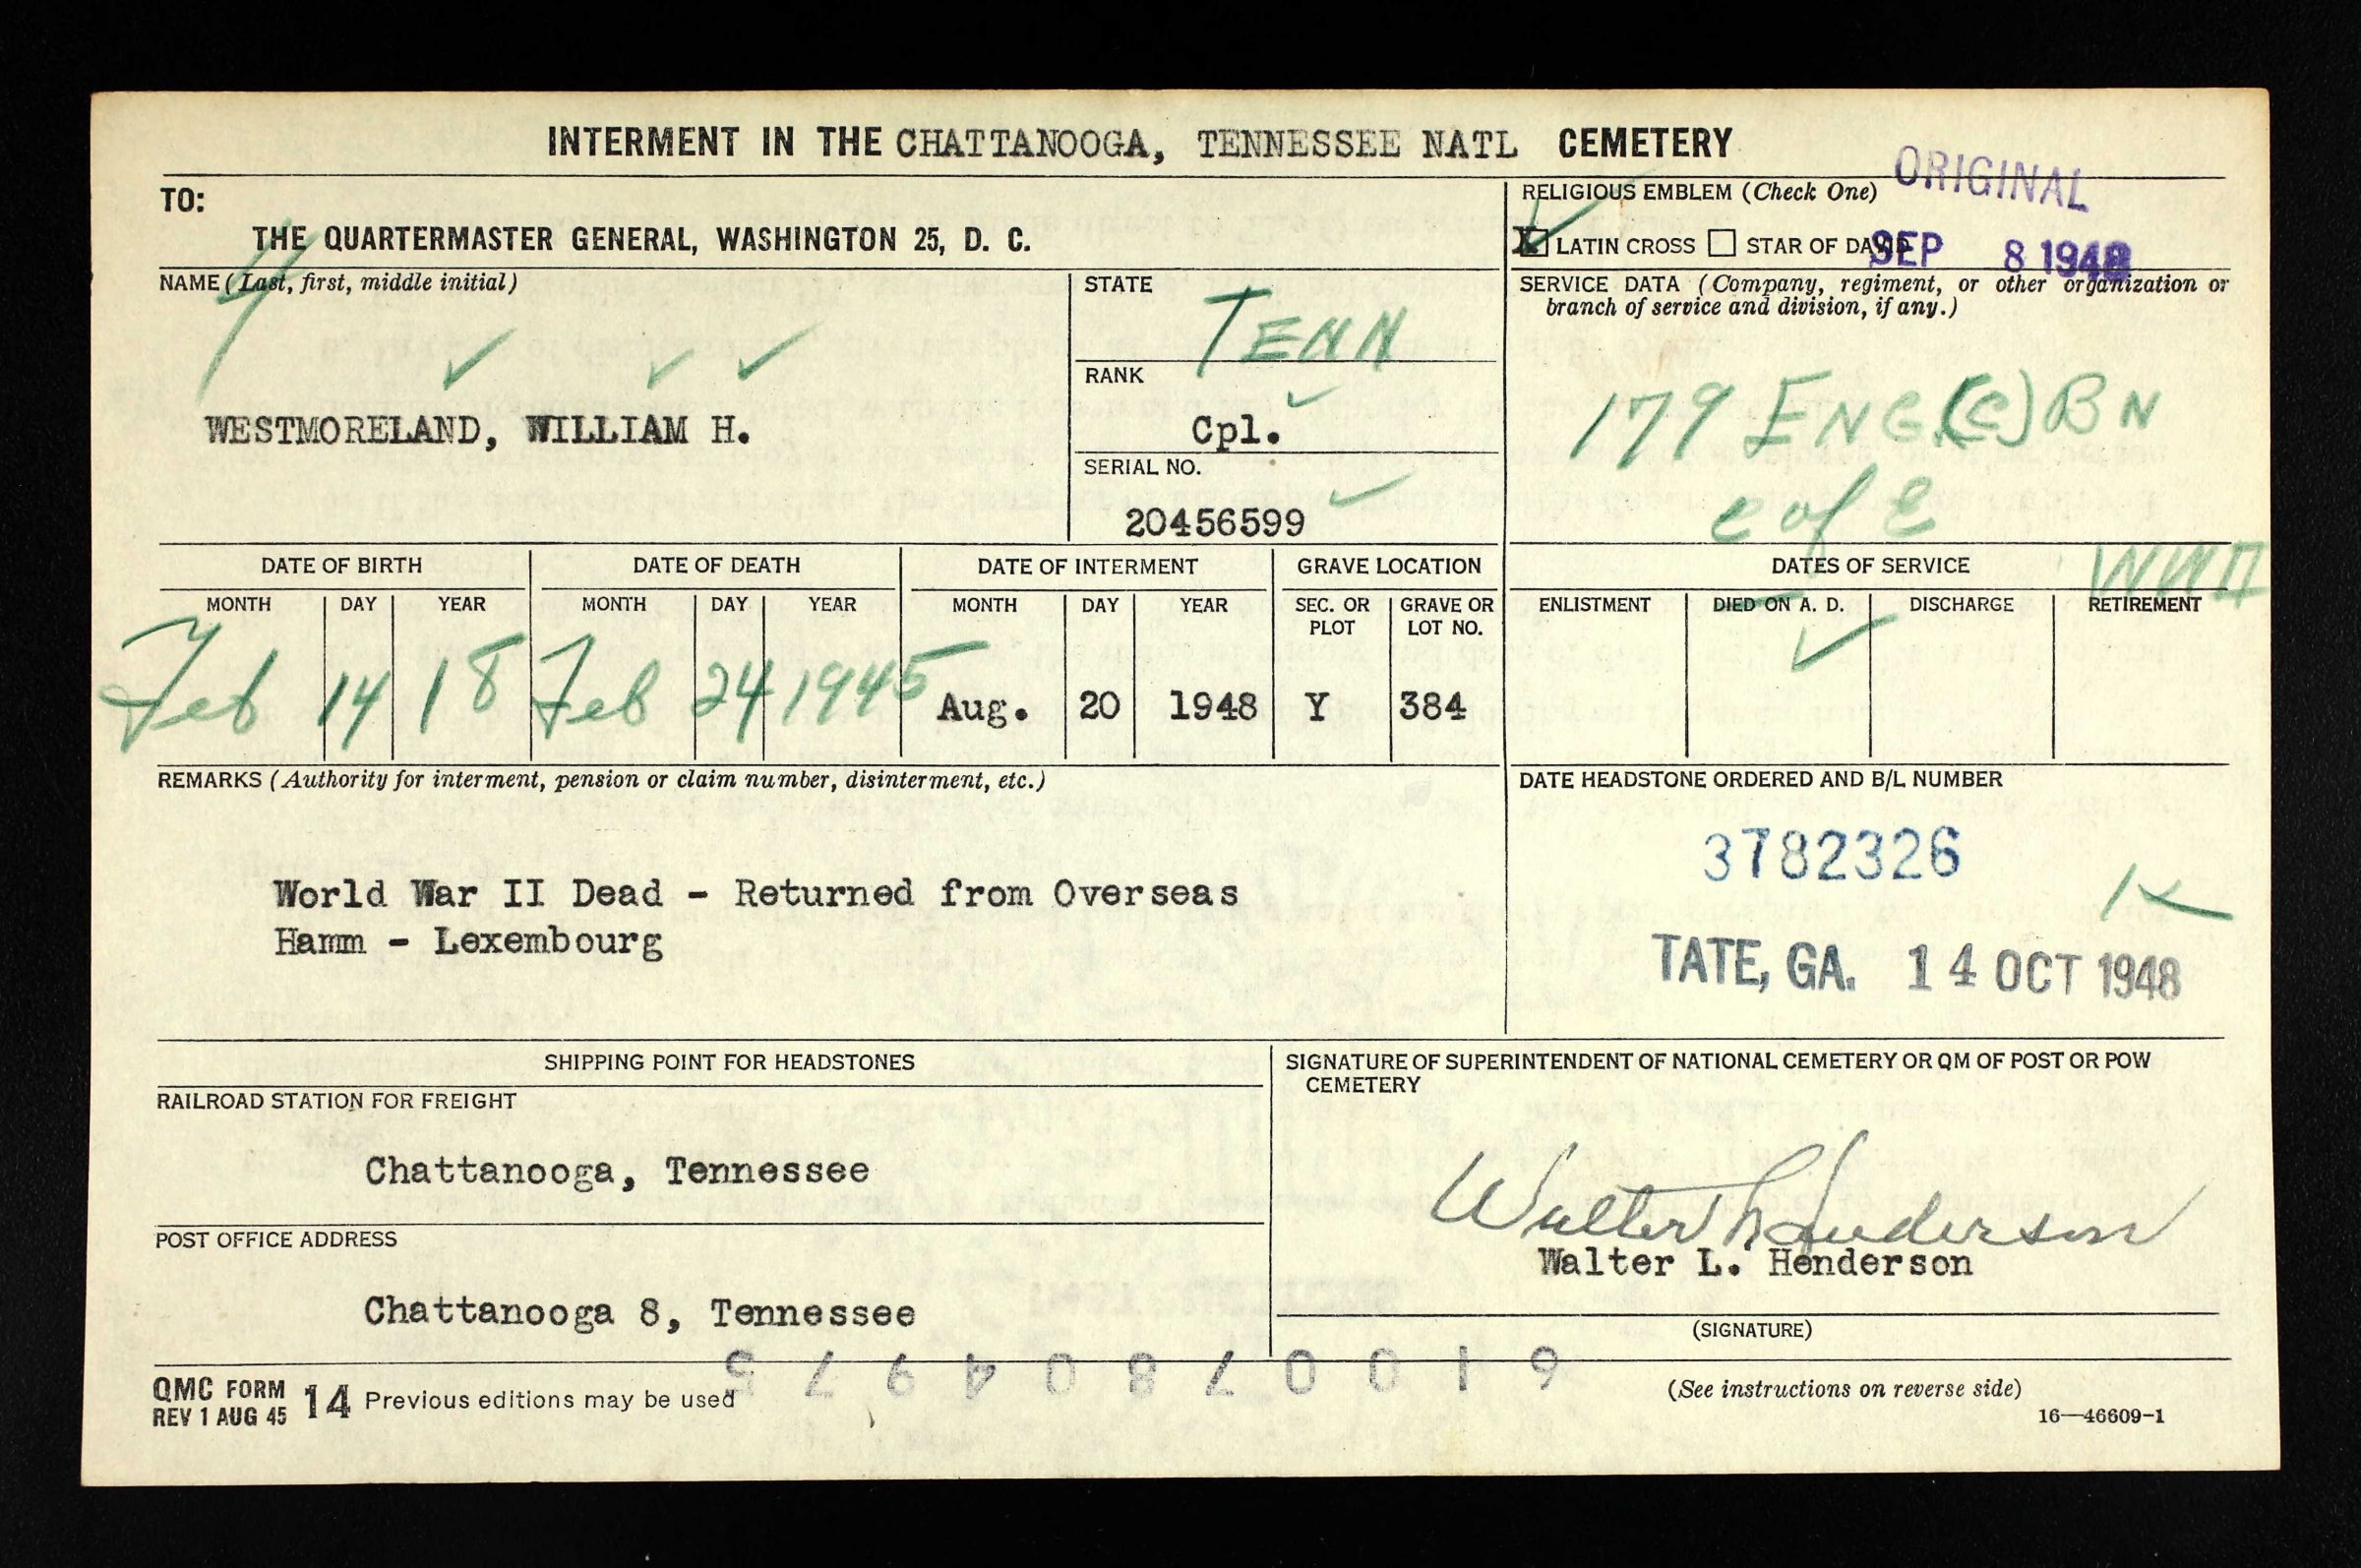 INTERMENT IN THE CHATTANOOGA, TENNESSEE NATL CEMETERY
ORIGINAL
TO:
THE QUARTERMASTER GENERAL, WASHINGTON 25, D. C.
RELIGIOUS EMBLEM (Check One)
X LATIN CROSS STAR OF DAVID
SEP 8 1948
NAME (Last, first, middle initial)
WESTMORELAND, WILLIAM H.
STATE
TENN
RANK
Cpl.
SERIAL NO.
20456599
SERVICE DATA (Company, regiment, or other organization or
branch of service and division, if any.)
179 ENG (C) BN
C of E
DATE OF BIRTH DATE OF DEATH DATE OF INTERMENT GRAVE LOCATION DATES OF SERVICE WWII
MONTH DAY YEAR MONTH DAY YEAR MONTH DAY YEAR SEC. OR PLOT GRAVE OR LOT NO. ENLISTMENT DIED ON A. D. DISCHARGE RETIREMENT
Feb 14 18 Feb 24 1945 Aug. 20 1948 Y 384
REMARKS (Authority for interment, pension or claim number, disinterment, etc.)
World War II Dead - Returned from Overseas
Hamm - Lexembourg
DATE HEADSTONE ORDERED AND B/L NUMBER
3782326
K
TATE, GA. 14 OCT 1948
SHIPPING POINT FOR HEADSTONES
RAILROAD STATION FOR FREIGHT
Chattanooga, Tennessee
POST OFFICE ADDRESS
Chattanooga 8, Tennessee
SIGNATURE OF SUPERINTENDENT OF NATIONAL CEMETERY OR QM OF POST OR POW
CEMETERY
Walter L Henderson
Walter L. Henderson
(SIGNATURE)
QMC FORM 14 Previous editions may be used
REV 1 AUG 45
(See instructions on reverse side)
16—46609-1